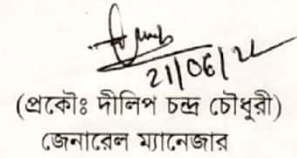 21/06/22
(প্রকৌঃ দীলিপ চন্দ্র চৌধুরী)
জেনারেল ম্যানেজার